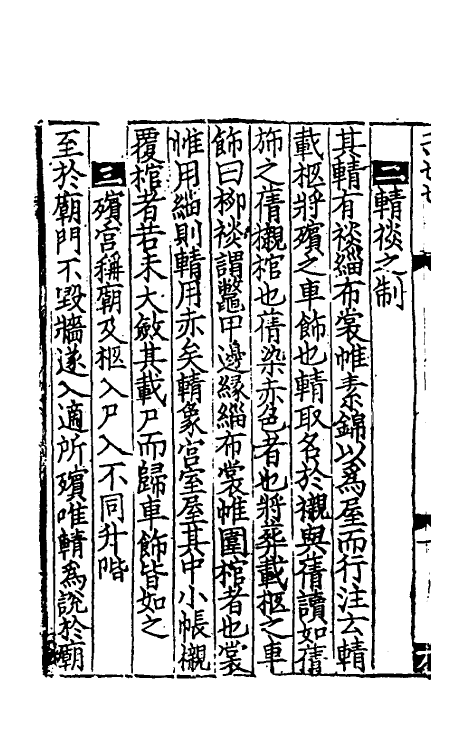 二輤裧之制
其輤有裧緇布裳帷素錦以爲屋而行注云輤
載柩將殯之車飾也輤取名於櫬與蒨讀如蒨
斾之蒨櫬棺也蒨染赤色者也將葬載柩之車
飾曰柳裧謂鼈甲邊緣緇布裳帷圍棺者也裳
帷用緇則輤用赤矣輤象宮室屋其中小帳櫬
覆棺者若未大斂其載尸而歸車飾皆如之
三殯宮稱廟及柩入尸入不同升階
至於廟門不毀牆遂入適所殯唯輤爲說於廟